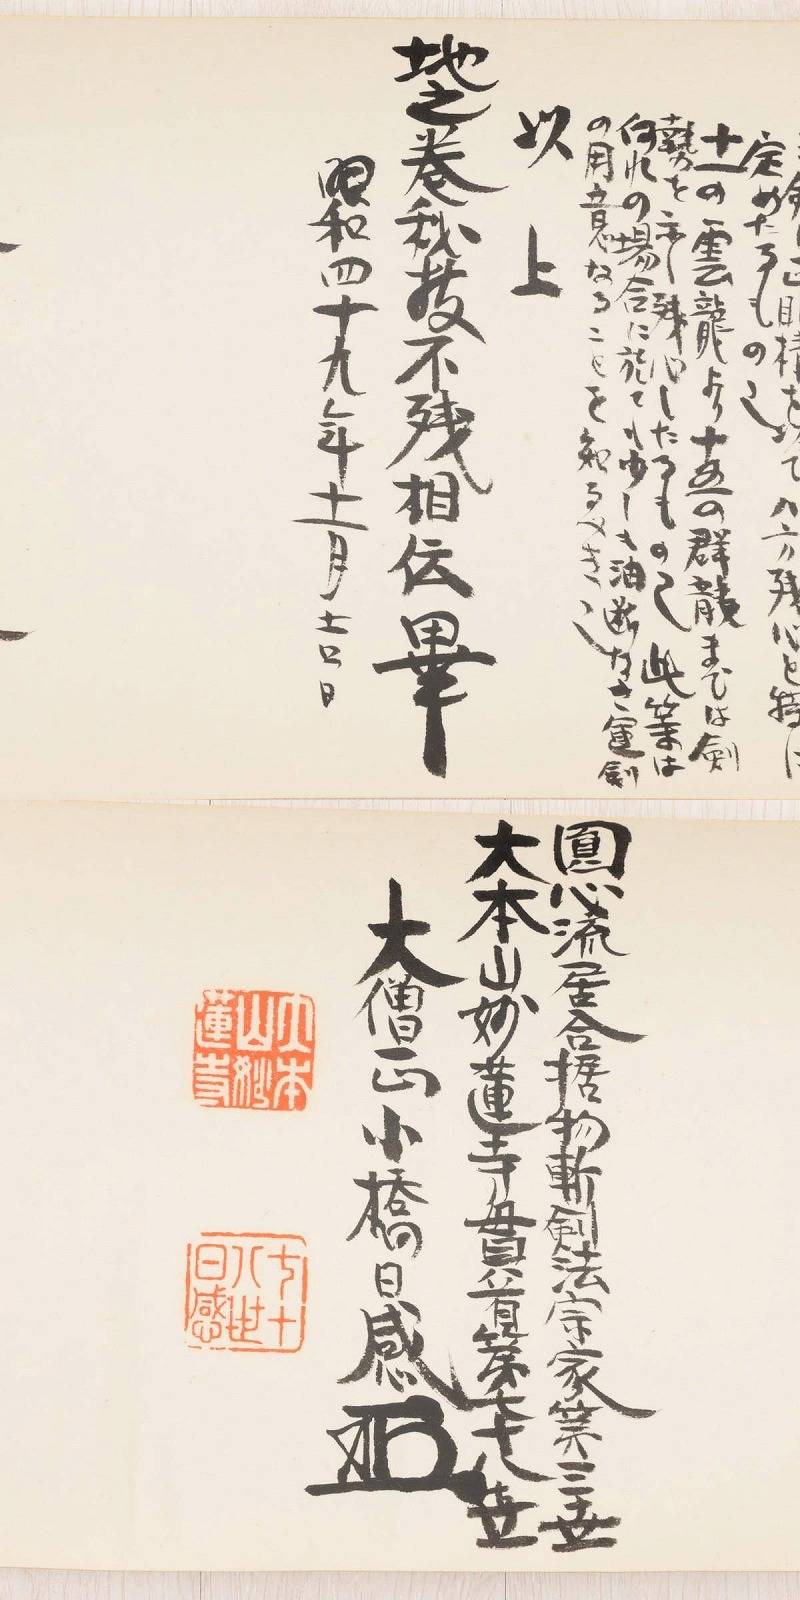 定めたるもの也
十一の雲龍より十五の群龍までは剣
勢を示し残心したるもの也此業は
何れの場合に於ても少しも油断なき運剣
の用意なることを知るべき也
以上
地之巻秘技不残相伝畢
昭和四十九年十一月吉日
圓心流居合据物斬剣法宗家第三世
大本山妙蓮寺貫首第七十八世
大僧正小橋日感
大本山妙蓮寺
七十八世日感